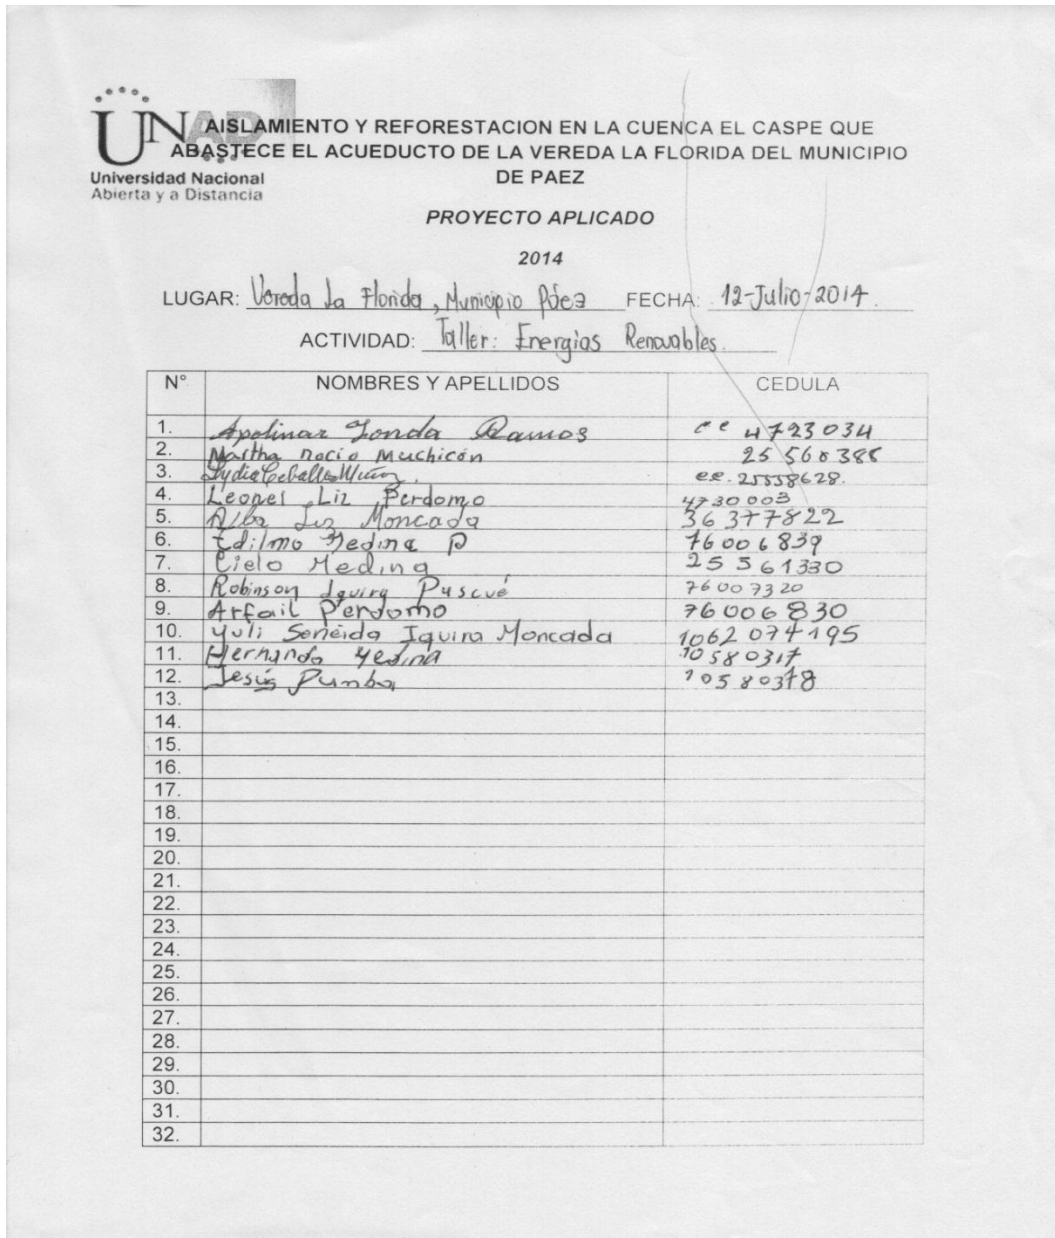 UNAD
Universidad Nacional
Abierta y a Distancia
AISLAMIENTO Y REFORESTACION EN LA CUENCA EL CASPE QUE
ABASTECE EL ACUEDUCTO DE LA VEREDA LA FLORIDA DEL MUNICIPIO
DE PAEZ
PROYECTO APLICADO
2014
LUGAR: Vereda La Florida, Municipio Páez FECHA: 12-Julio-2014.
ACTIVIDAD: Taller: Energías Renovables.
N° NOMBRES Y APELLIDOS CEDULA
1. Apolinar Ramos cc 4723034
2. Martha Rocio Muchicón 25 560 386
3. Lydia Ceballos Muñoz. cc. 25558628.
4. Leonel Liz Perdomo 4730003
5. Alba Liz Moncada 36377822
6. Edilmo Medina P 76006839
7. Cielo Medina 25561330
8. Robinson Iquira Puscué 76007320
9. Arfail Perdomo 76006830
10. Yuli Seneida Iquira Moncada 1062 074195
11. Hernando Medina 10580317
12. Jesús 10580378
13.
14.
15.
16.
17.
18.
19.
20.
21.
22.
23.
24.
25.
26.
27.
28.
29.
30.
31.
32.